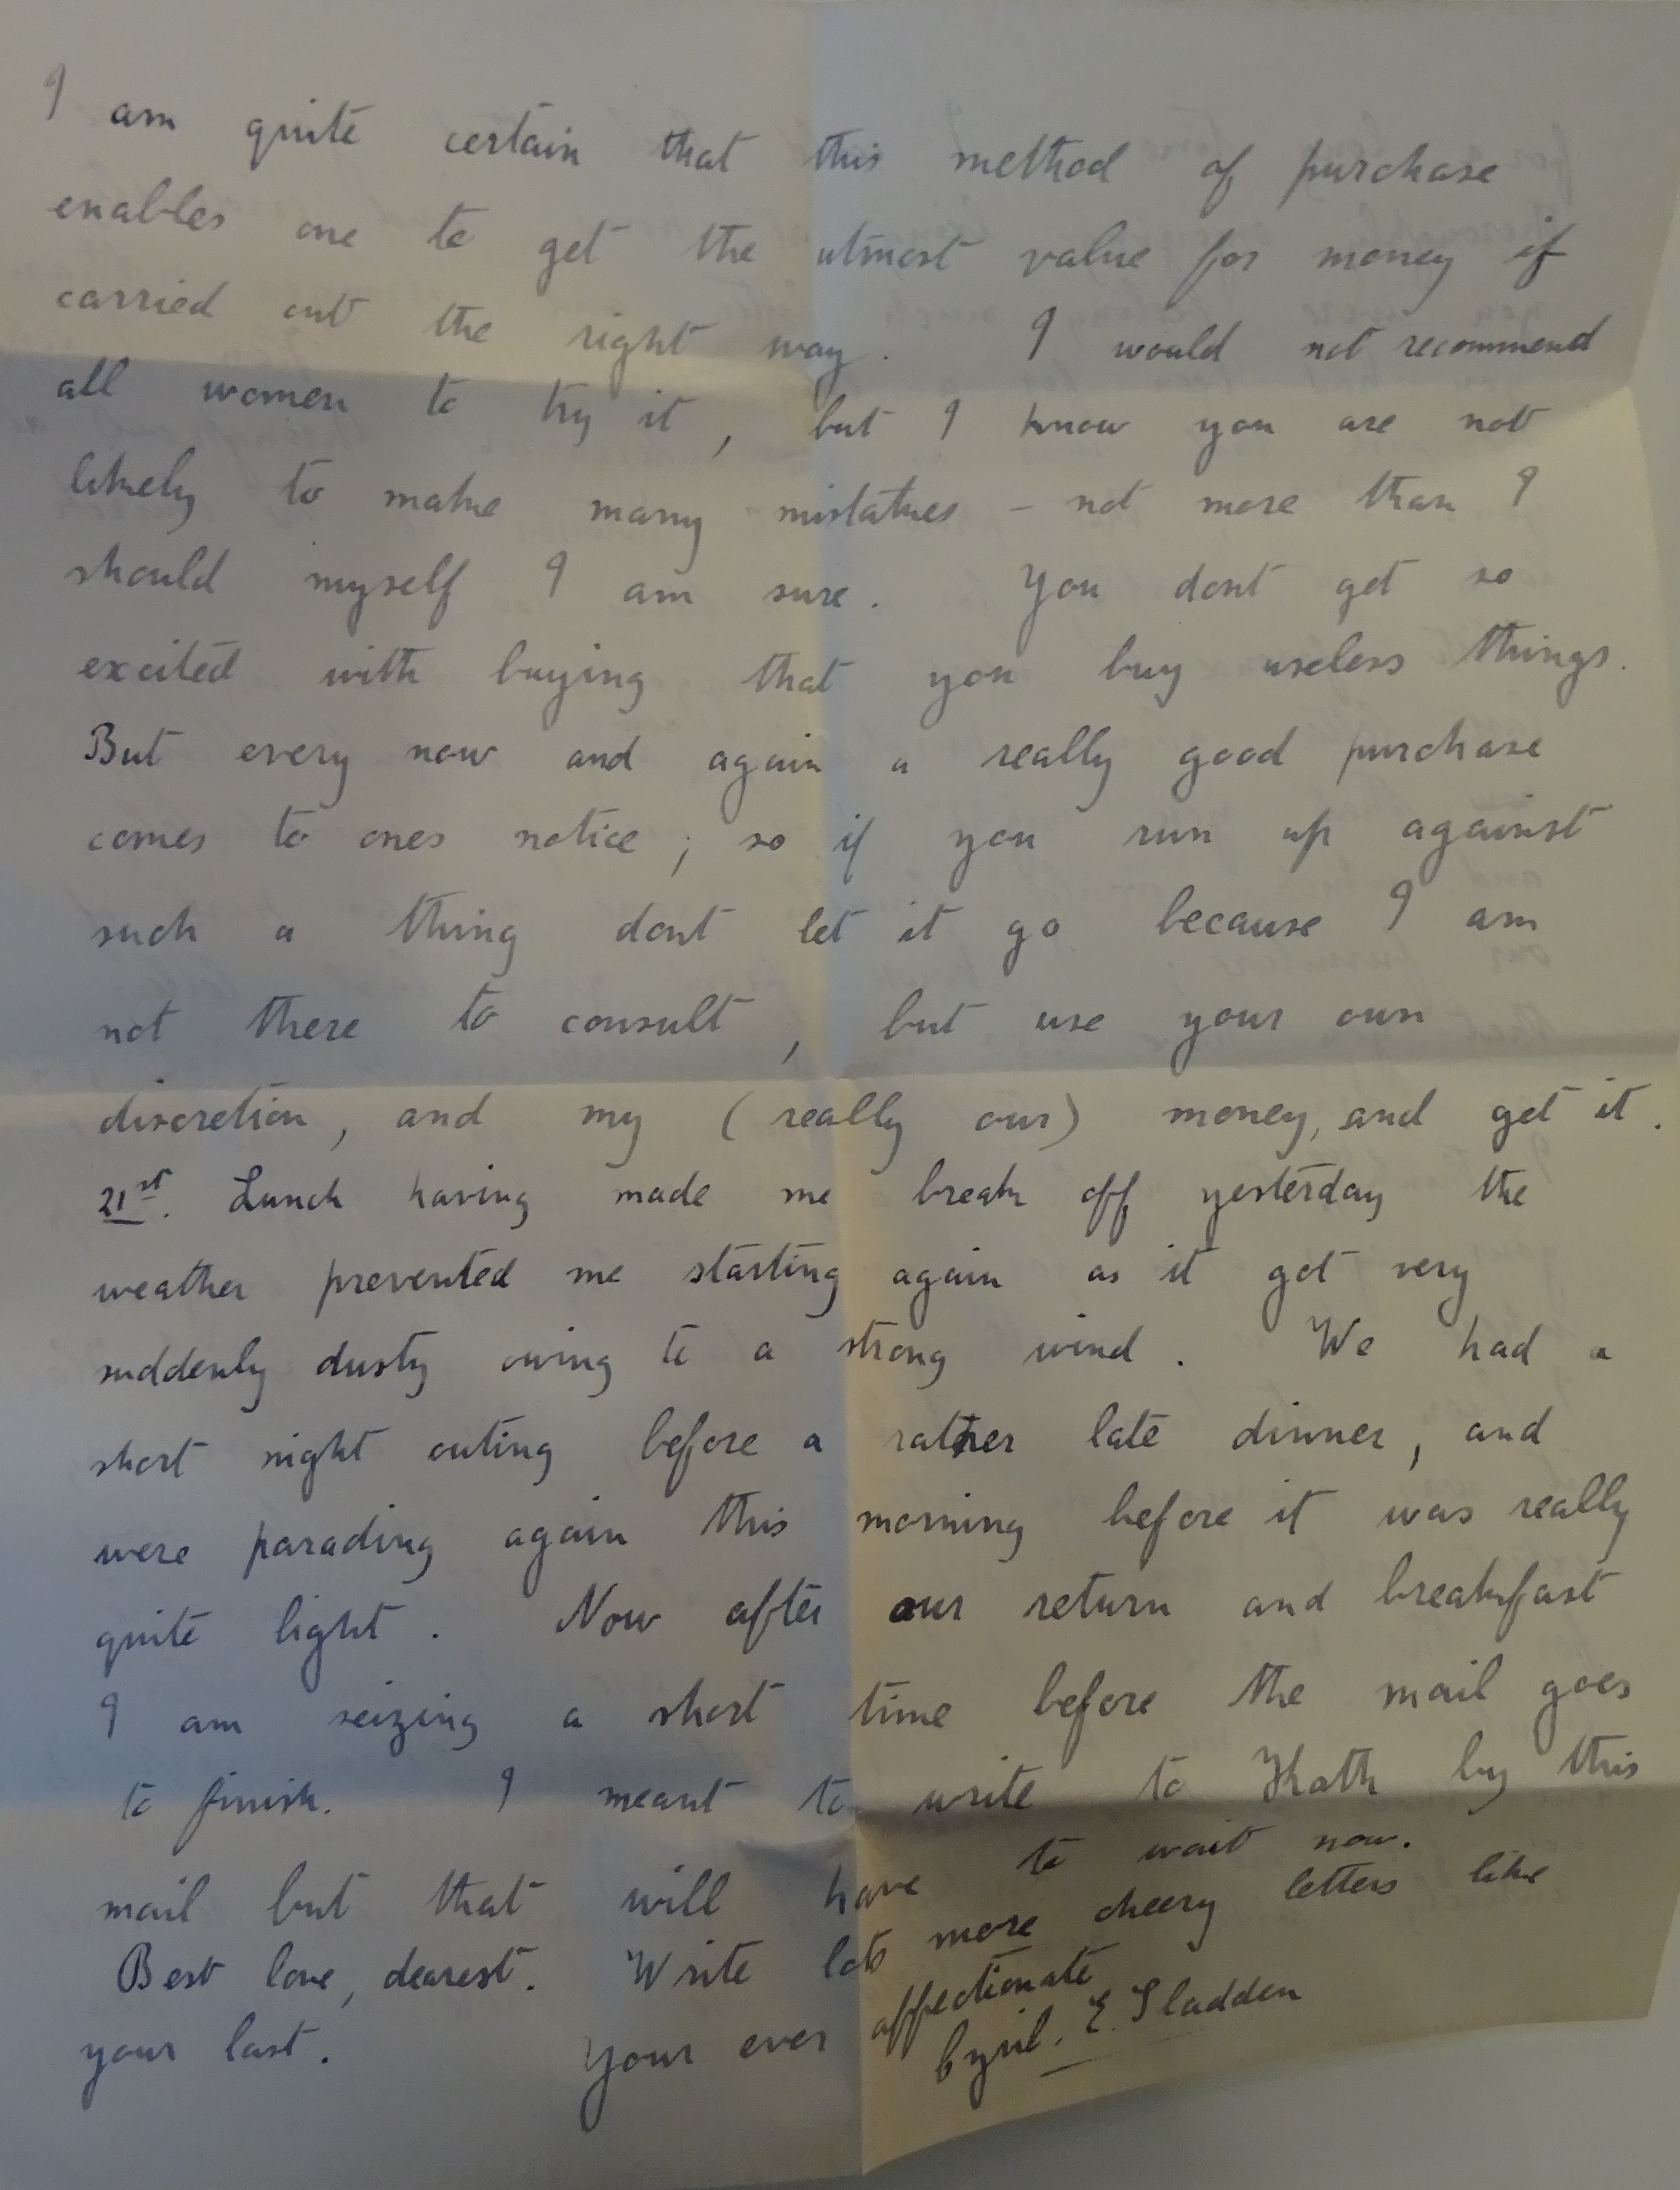 I am quite certain that this method of purchase
enables one to get the utmost value for money if
carried out the right way. I would not recommend
all women to try it, but I know you are not
likely to make many mistakes - not more than I
should myself I am sure. You dont get so
excited with buying that you buy useless things.
But every now and again a really good purchase
comes to ones notice; so if you run up against
such a thing dont let it go because I am
not there to consult, but use your own
discretion, and my (really our) money, and get it.
21st. Lunch having made me break off yesterday the
weather prevented me starting again as it got very
suddenly dusty owing to a strong wind. We had a
short night outing before a rather late dinner, and
were parading again this morning before it was really
quite light. Now after our return and breakfast
I am seizing a short time before the mail goes
to finish. I meant to write to Kath by this
mail but that will have to wait now.
Best love, dearest. Write lots more cheery letters like
your last. Your ever affectionate
Cyril. E. Sladden